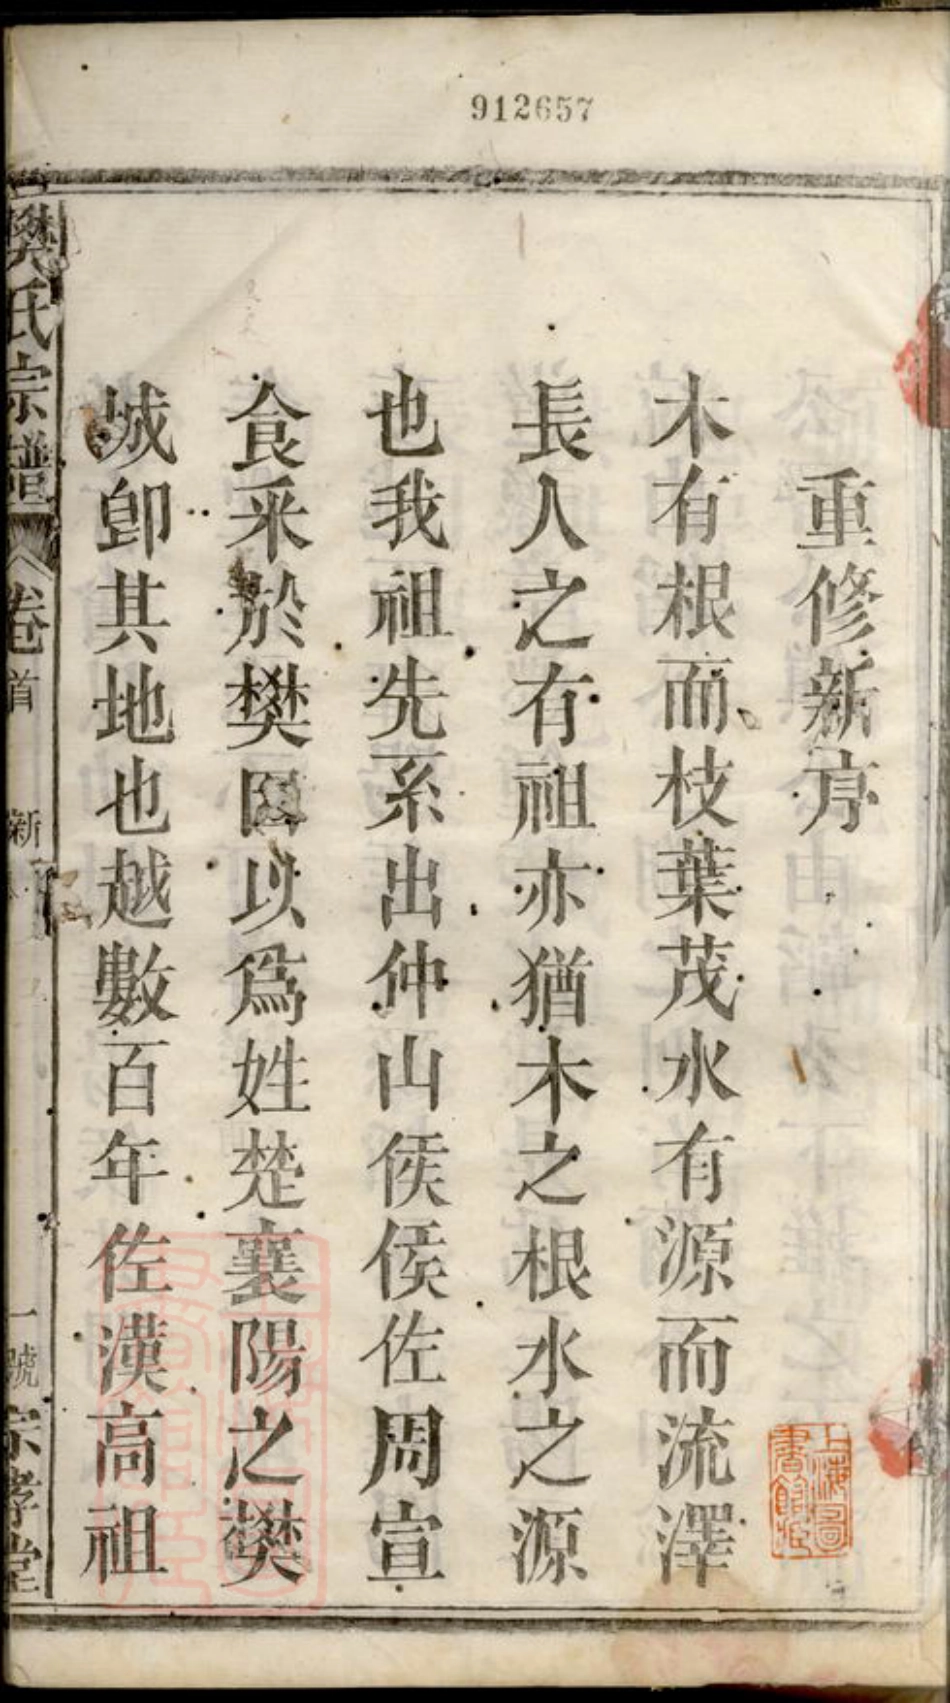 912657
重修新序
木有根而枝葉茂水有源而流澤
長人之有祖亦猶木之根水之源
也我祖先系出仲山侯侯佐周宣
食釆於樊因以爲姓楚襄陽之樊
城卽其地也越數百年佐漢高祖
樊氏宗譜
卷首
新序
一號
宗孝堂
上海圖
書館藏